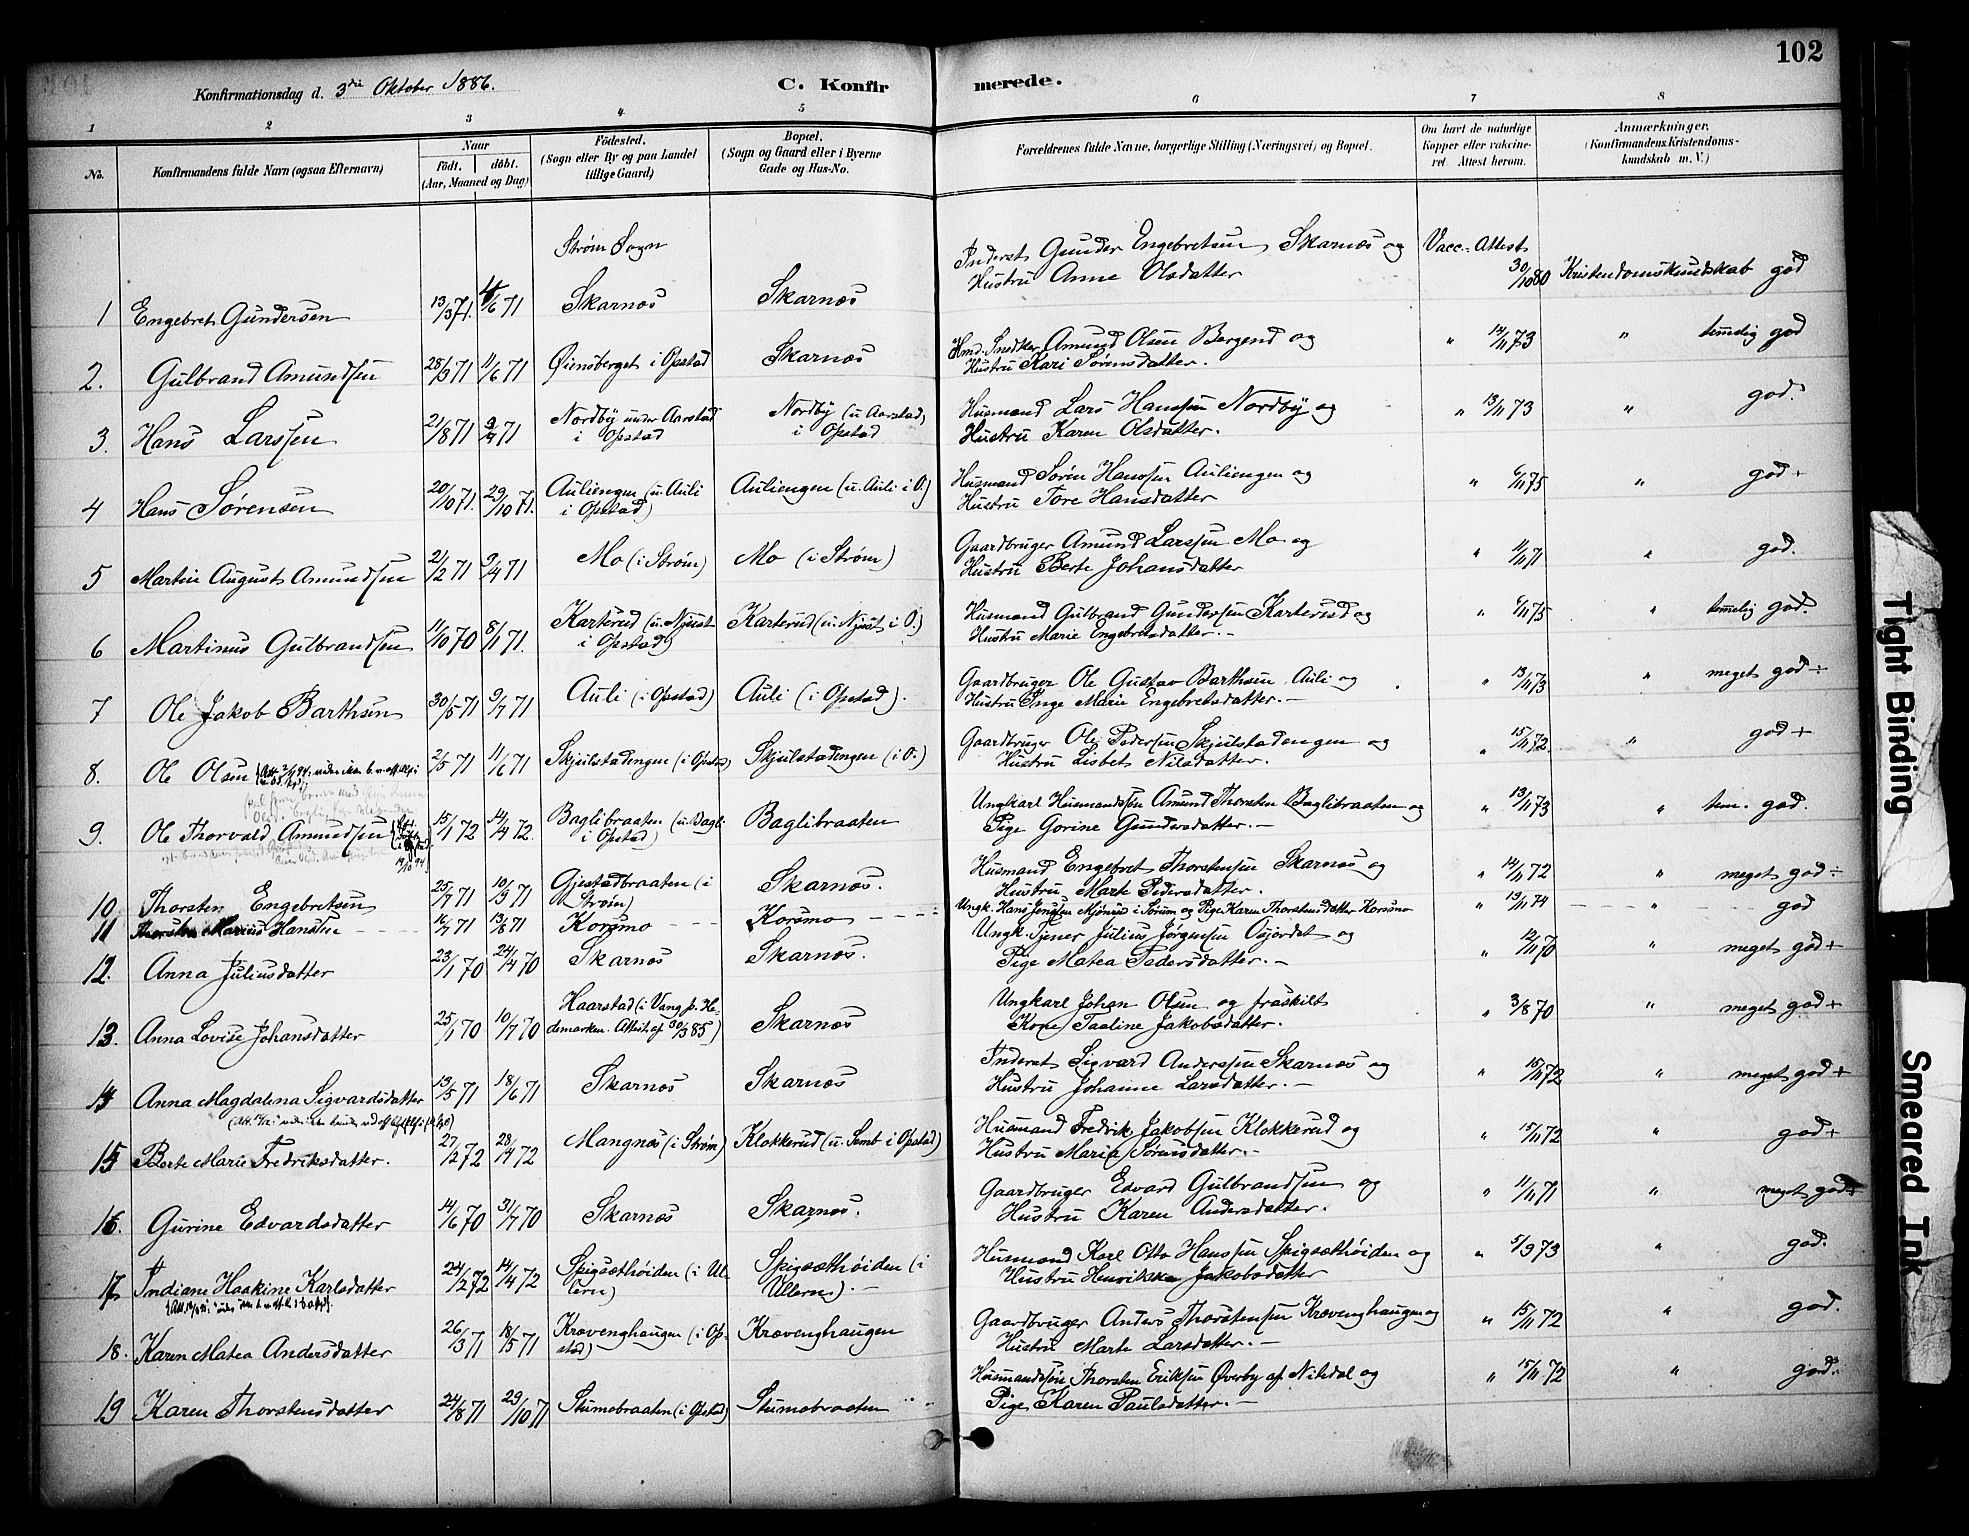 102
Konfirmationsdag d. 3die Oktober 1886.
C. Konfirmerede.
1 2 3 4 5 6 7 8
No.
Konfirmandens fulde Navn (ogsaa Efternavn)
Naar
Födt. döbt.
(Aar, Maaned og Dag)
Födested.
(Sogn eller By og paa Landet
tillige Gaard)
Bopæl.
(Sogn og Gaard eller i Byerne
Gade og Hus-No.
Forældrenes fulde Navne, borgerlige Stilling (Næringsvei) og Bopæl.
Om havt de naturlige
Kopper eller vakcine-
ret. Attest herom.
Anmærkninger.
(Konfirmandens Kristendoms-
kundskab m. V.)
Strøm Sogn
1 Engebret Gundersen 13/3 71. 4/6 71 Skarnæs Skarnæs Inderst Gunder Engebretsen Skarnæs og Vacc. Attest 30/10 80 Kristendomskundskab god
Hustru Anne Olsdatter
2. Gulbrand Amundsen 28/3 71 11/6 71 Øiensberget i Opstad Skarnæs Hmd. Snedker Amund Olsen Bergend og " 14/11 73 " temmelig god
Hustru Kari Sørensdatter.
3. Hans Larssen 21/8 71 71 Nordby under Aarstad i Opstad Nordby (u. Aarstad) i Opstad Husmand Lars Hanssen Nordby og " 13/11 73 " god.
Hustru Karen Olsdatter.
4 Hans Sørensen 20/10 71. 29/10 71. Auliengen (u. Auli i Opstad) Auliengen (u. Auli i O.) Husmand Søren Hanssen Auliengen og " 6/11 75 " god +
Hustru Tore Hansdatter
5 Martin August Amundsen 21/2 71 9/4 71 Mo (i Strøm) Mo (i Strøm) Gaardbruger Amund Larssen Mo og " 11/11 71 " god.
Hustru Berte Johansdatter
6 Martinus Gulbrandsen 11/10 70 8/1 71. Karterud (u. Njust i Opstad) Karterud (u. Njust i O.) Husmand Gulbrand Gundersen Karterud og " 6/11 75 " temmelig god.
Hustru Marie Engebretsdatter. -
7 Ole Jakob Barthsen 30/5 71 9/7 71 Auli (i Opstad) Auli (i Opstad). Gaardbruger Ole Gustav Barthsen Auli og " 13/11 73 " meget god ÷
Hustru Inge Marie Engebretsdatter. -
8. Ole Olsen 2/5 71 11/6 71 Skjulstadengen (i Opstad) Skjulstadengen (i O.) Gaardbruger Ole Pedersen Skjulstadengen og " 15/11 72 " god +
Hustru Lisbet Nilsdatter.
9. Ole Thorvald Amundsen 15/1 72 14/4 72. Baglibraaten (u. Bagli i Opstad) Baglibraaten Ungkarl Husmandssøn Amund Thorsten Baglibraaten og " 13/11 73 " tem. god.
Pige Gorine Gundersdatter. -
10 Thorsten Engebretsen 25/7 71 10/9 71 Gjestadbraaten (i Strøm) Skarnæs. Husmand Engebret Thorstensen Skarnæs og " 14/11 72 " meget god ÷
Hustru Marte Pedersdatter.
11 Marius Hanssen 16/7 71 13/8 71 Korsmo Korsmo Ungk. Hans Jenssen Mjønæs i Sørum og Pige Karen Thorstensdatter Korsmo " 19/11 74 " god
12. Anna Juliusdatter 23/1 70 24/4 70 Skarnæs Skarnæs. Ungk. Tjener Julius Jørgensen Osjordet og " 12/11 70 " meget god +
Pige Matea Pedersdatter. -
13. Anna Lovise Johansdatter 25/1 70 10/7 70 Haarstad (i Vang p. Hedemarken. Attest af 30/3 85) Skarnæs Ungkarl Johan Olsen og fraskilt " 3/8 70 " meget god +
Kone Taaline Jakobsdatter.
14 Anna Magdalena Sigvardsdatter 13/5 71 18/6 71 Skarnæs Skarnæs Inderst Sigvard Anderssen Skarnæs og " 15/11 72 " meget god +
Hustru Johanne Larsdatter. -
15 Berte Marie Fredriksdatter. 27/2 72 28/4 72 Mangnæs (i Strøm) Klokkerud (u. Semb i Opstad) Husmand Fredrik Jakobsen Klokkerud og " 15/11 72 " god +
Hustru Maria Sørensdatter. -
16. Gurine Edvardsdatter 14/6 70 31/7 70 Skarnæs Skarnæs. Gaardbruger Edvard Gulbrandsen og " 11/11 71 " meget god
Hustru Karen Andersdatter.
17. Indiane Haakine Karlsdatter 24/12 72 14/4 72 Spigsæthøiden (i Ullern) Spigsæthøiden (i Ullern). - Husmand Karl Otto Hanssen Spigsæthøiden og " 5/9 73 " god.
Hustru Henrikka Jakobsdatter
18. Karen Matea Andersdatter 26/3 71 18/5 71 Kravenghaugen (i Opstad) Kravenghaugen Gaardbruger Anders Thorstensen Kravenghaugen og " 15/11 72 " god.
Hustru Marte Larsdatter. -
19 Karen Thorstensdatter 24/8 71 29/10 71 Stumobraaten (i Opstad) Stumobraaten Husmandssøn Thorsten Eriksen Øverby af Nitedal og " 15/11 72 " god
Pige Karen Paulsdatter. -
Tight Binding
Smeared Ink